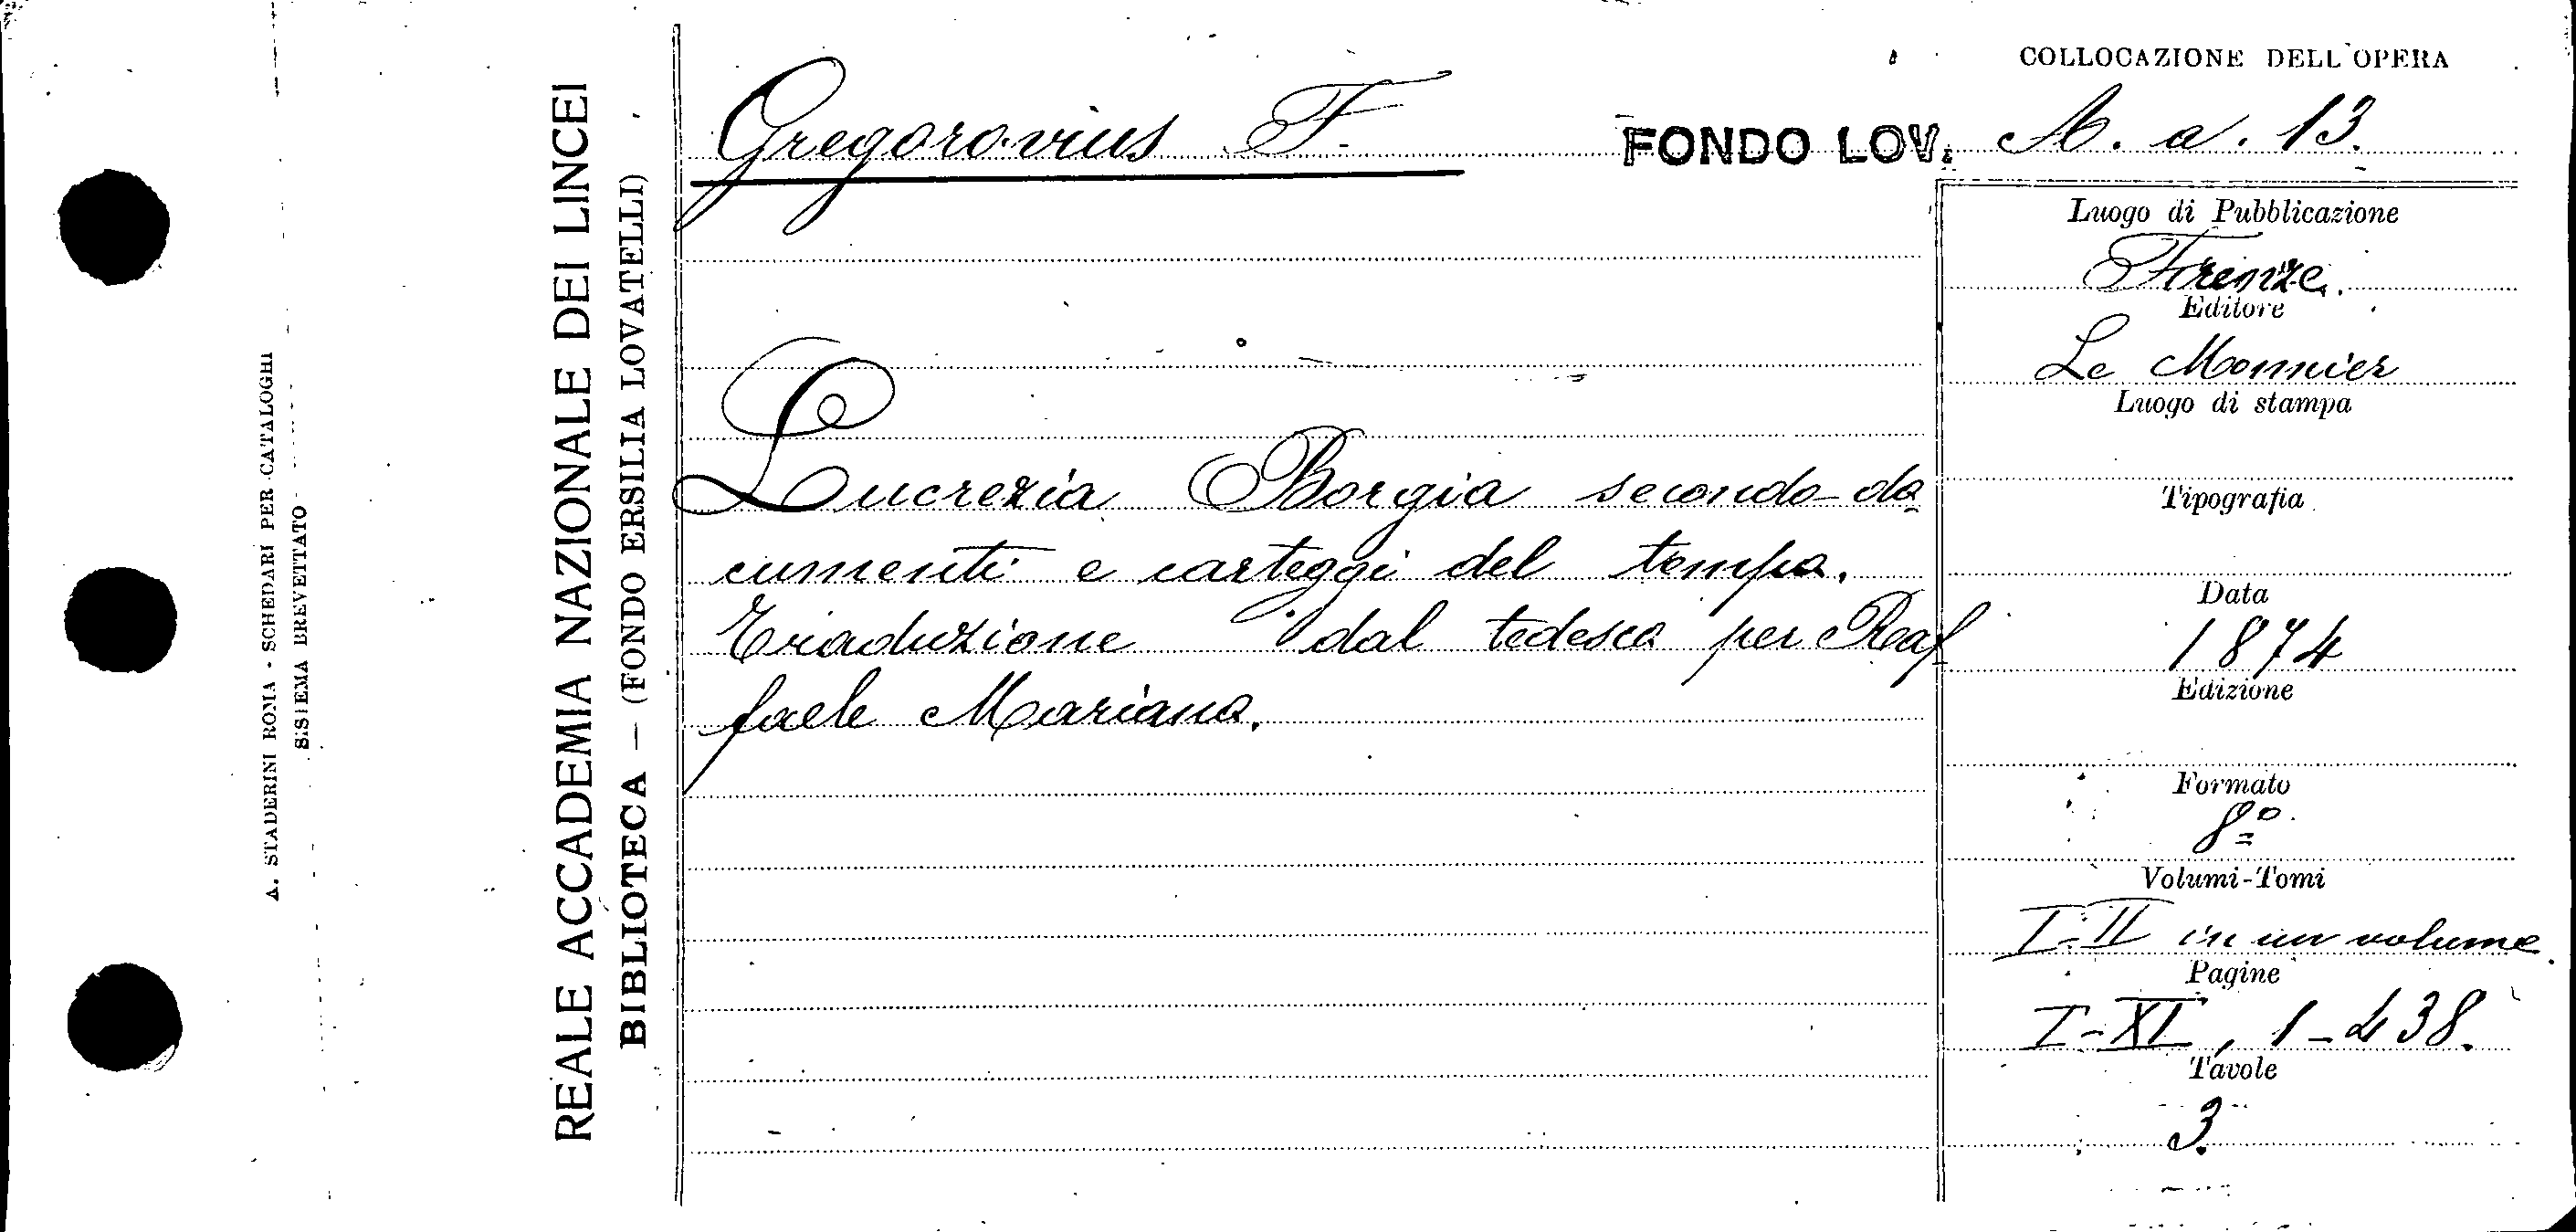 A. STADERINI ROMA - SCHEDARI PER CATALOGHI
SISTEMA BREVETTATO
REALE ACCADEMIA NAZIONALE DEI LINCEI
BIBLIOTECA — (FONDO ERSILIA LOVATELLI)
COLLOCAZIONE DELL'OPERA
Gregorovius F.
FONDO LOV. A. a. 13.
Lucrezia Borgia secondo do
cumenti e carteggi del tempo.
Traduzione dal tedesco per Raf
faele Mariano.
Luogo di Pubblicazione
Firenze.
Editore
Le Monnier
Luogo di stampa
Tipografia
Data
1874
Edizione
Formato
8º
Volumi-Tomi
I-II in un volume
Pagine
I-XI, 1-438.
Tavole
3